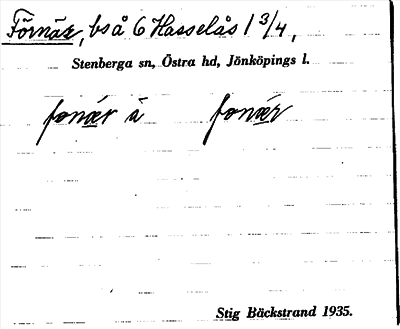 Förnäs, bs å 6 Hasselås 1 3/4,
Stenberga sn, Östra hd, Jönköpings l.
fonær å fonær
Stig Bäckstrand 1935.